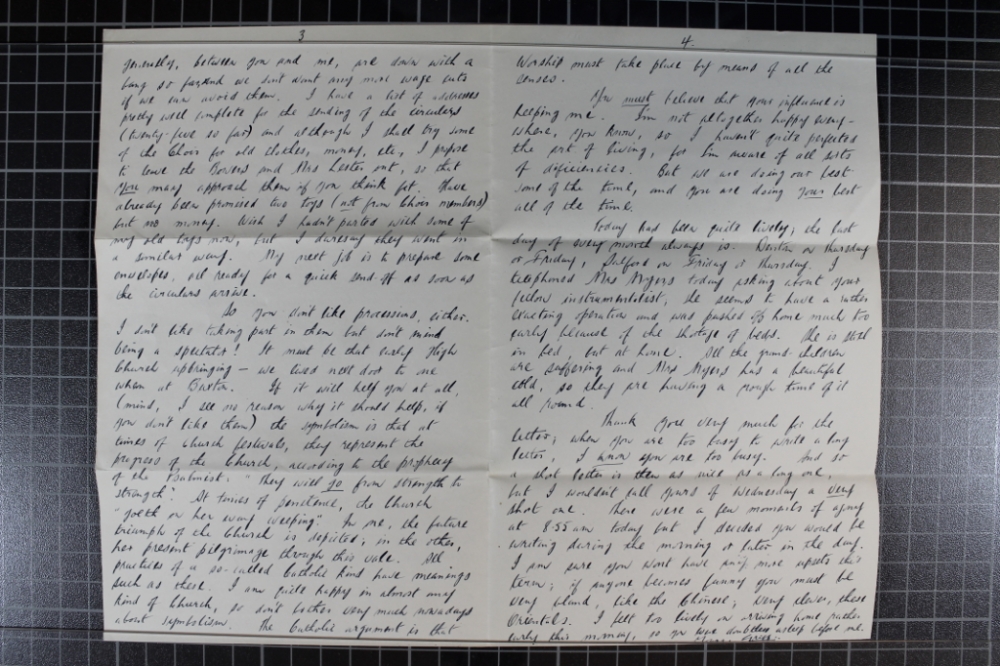 3
generally, between you and me, are down with a
bang so far, and we don't want any more wage cuts
if we can avoid them. I have a list of addresses
pretty well complete for the sending of the circulars
(twenty-five so far) and although I shall try some
of the Choir for old clothes, money, etc, I propose
to leave the Bowers and Mrs Lester out, so that
you may approach them if you think fit. Have
already been promised two toys (not from Choir members)
but no money. Wish I hadn't parted with some of
my old toys now, but I daresay they went in
a similar way. My next job is to prepare some
envelopes, all ready for a quick send-off as soon as
the circulars arrive.
So you don't like processions, either.
I don't like taking part in them but don't mind
being a spectator! It must be that early High
Church upbringing — we lived next door to one
when at Buxton. If it will help you at all,
(mind, I see no reason why it should help, if
you don't like them) the symbolism is that at
times of Church festivals, they represent the
progress of the Church, according to the prophecy
of the Psalmist: "They will go from strength to
strength". At times of penitence, the Church
"goeth on her way weeping". In one, the future
triumph of the Church is depicted; in the other,
her present pilgrimage through this vale. All
practices of a so-called Catholic kind have meanings
such as these. I am quite happy in almost any
kind of Church, so don't bother very much nowadays
about symbolism. The Catholic argument is that
4.
Worship must take place by means of all the
senses.
You must believe that your influence is
keeping me. I'm not altogether happy every-
where, you know, so I haven't quite perfected
the art of living, for I'm aware of all sorts
of deficiencies. But we are doing our best
some of the time, and you are doing your best
all of the time.
Today had been quite lively; the last
day of every month always is. Denton on Thursday
or Friday; Salford on Friday or Thursday. I
telephoned Mrs Myers today asking about your
fellow instrumentalist, she seems to have a rather
exacting operation and was pushed off home much too
early because of the shortage of beds. She is still
in bed, but at home. All the grand-children
are suffering and Mrs Myers has a beautiful
cold, so they are having a rough time of it
all round.
Thank you very much for the
letter; when you are too busy to write a long
letter, I know you are too busy. And so
a short letter is then as nice as a long one,
but I wouldn't call yours of Wednesday a very
short one. There were a few moments of agony
at 8.55 am today but I decided you would be
writing during the morning or later in the day.
I am sure you wont have any more upsets this
term; if anyone becomes funny you must be
very bland, like the Chinese; very clever, these
Orientals. I felt too lively on arriving home rather
early this morning, so you were doubtless asleep before me.